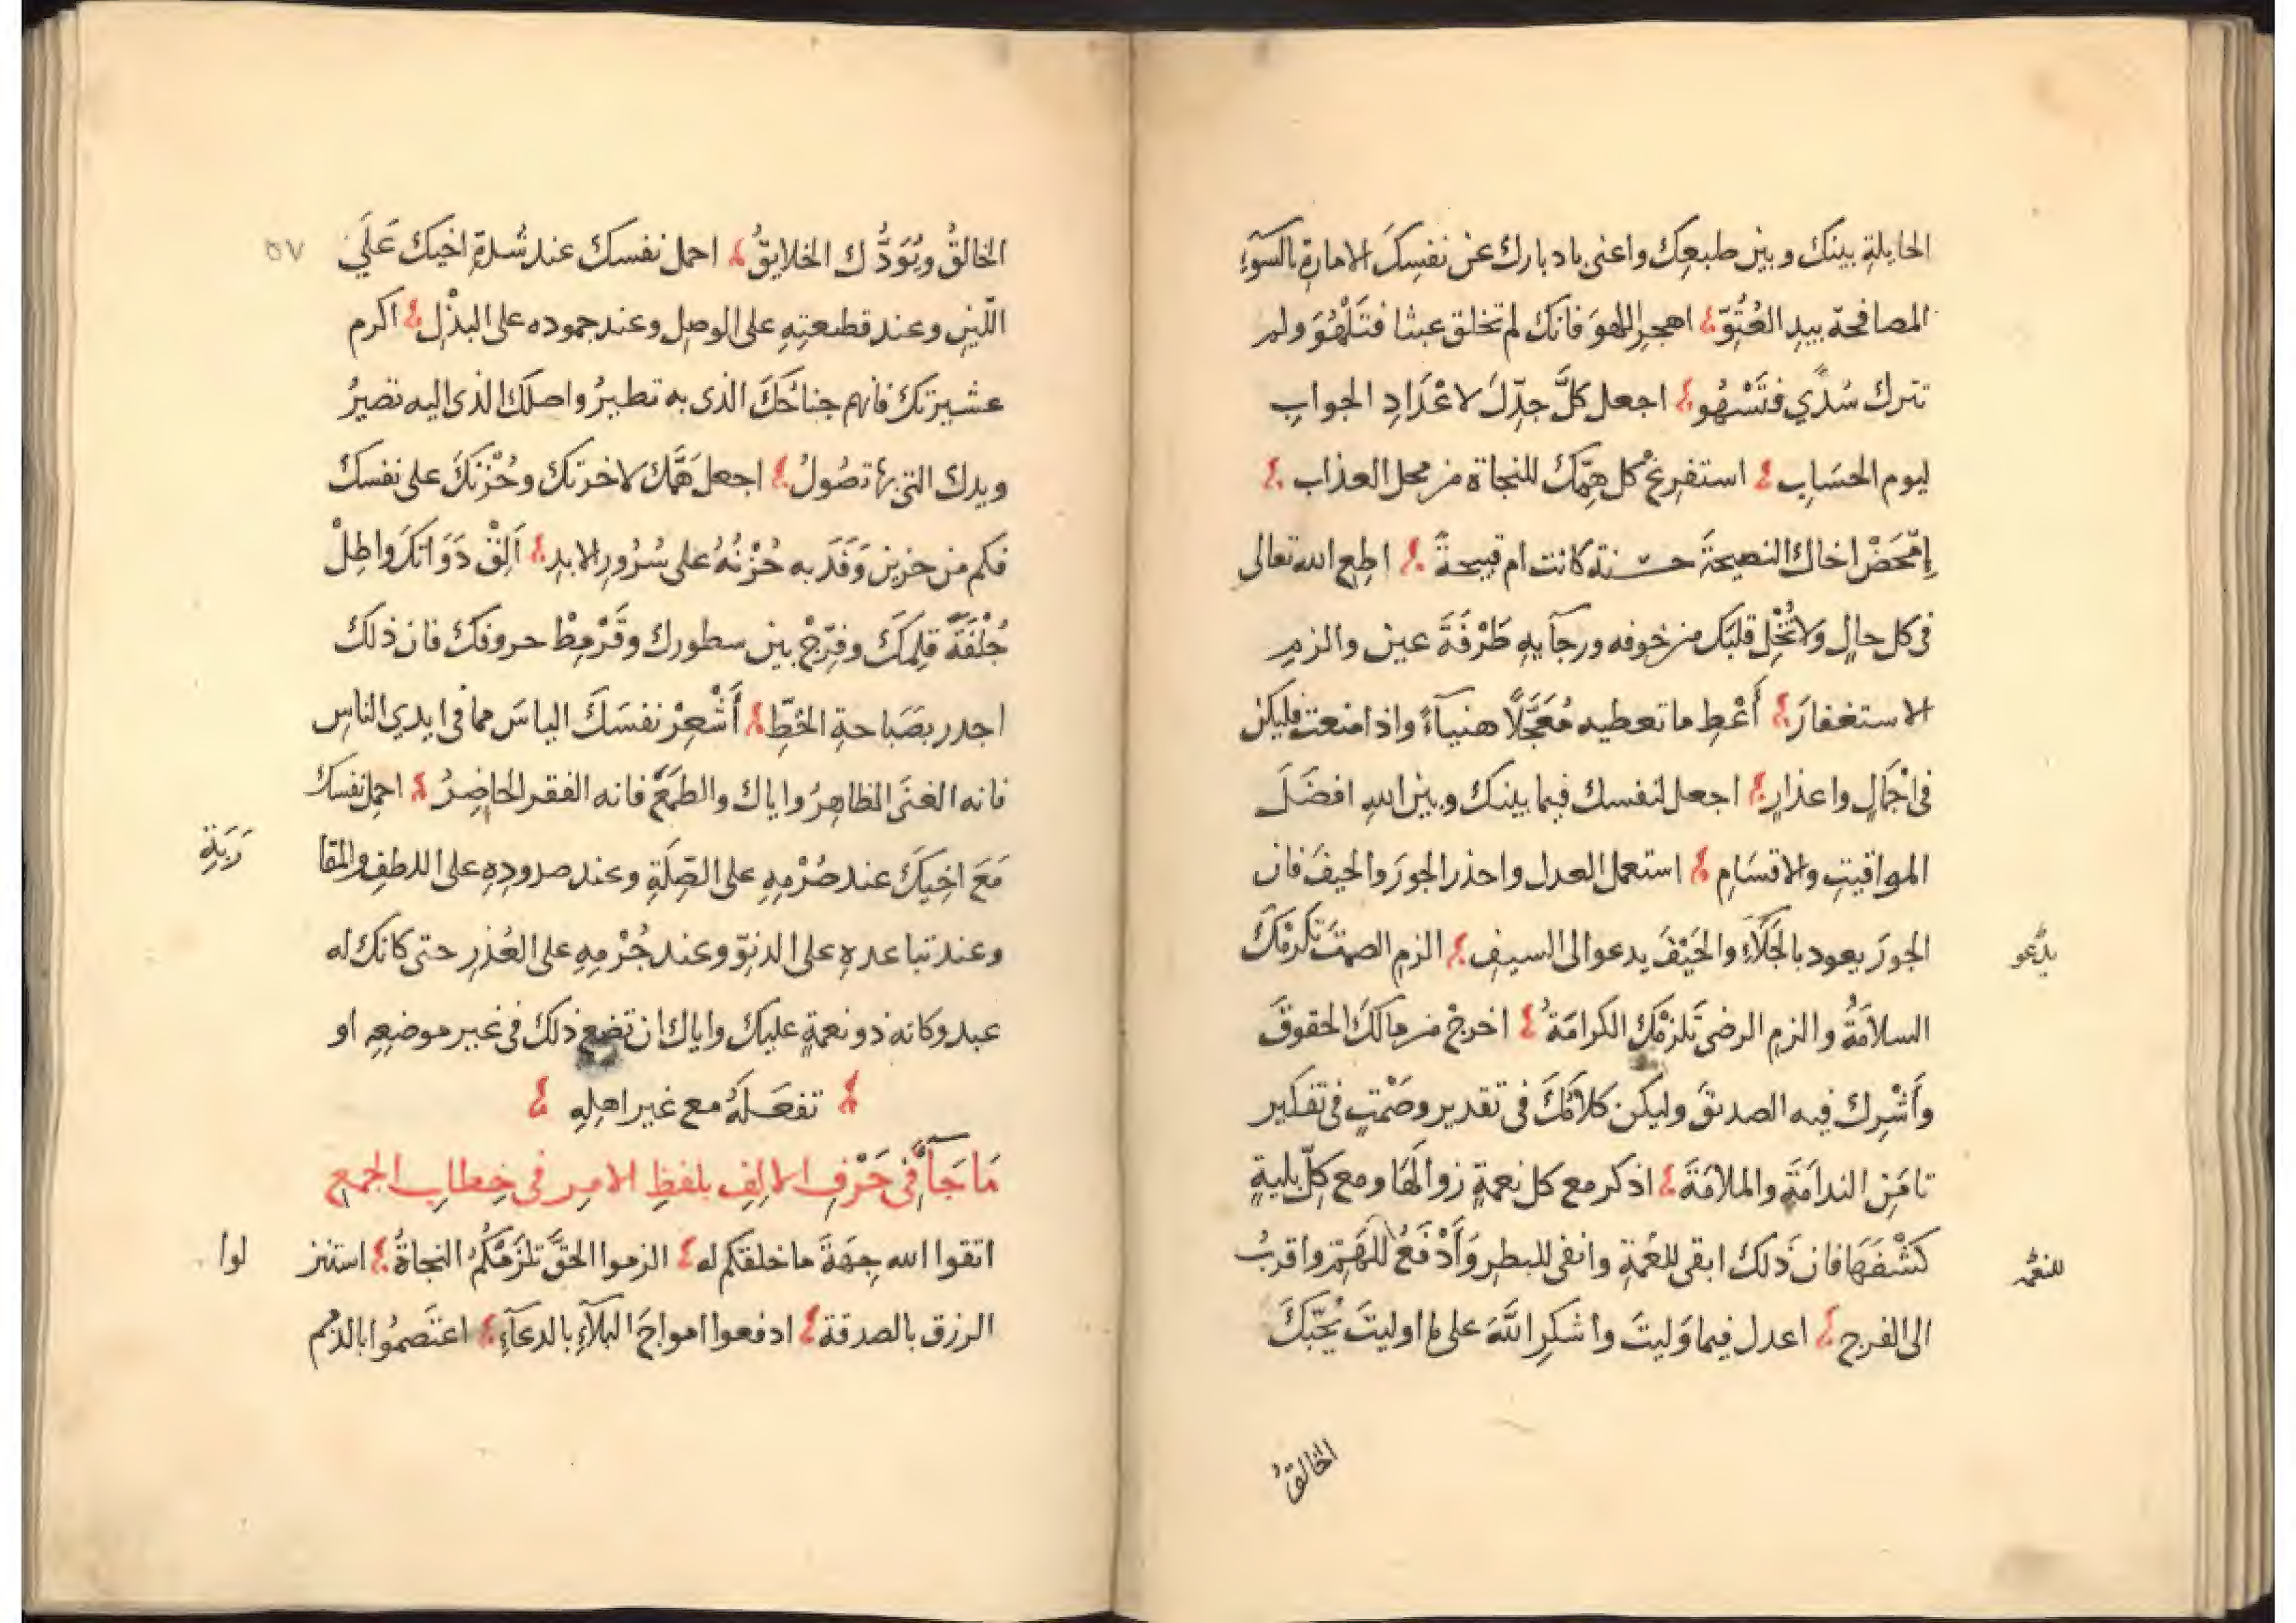 الحايلةِ بينك وبين طبعك واعنى بادبارك عن نفسِكَ الامارةِ بالسوءِ
المصافحة بيدِ العُتُوِّ اهجرِ اللهوَ فانك لم تخلق عبثا فتَلْهُوَ ولم
تترك سُدًي فتَسْهُو اجعل كلَّ جدِّكَ لاعْدَادِ الجوابِ
ليوم الحسَابِ استفرِغْ كل هِمّتِكَ للنجاة من محل العذاب
اِمْحَضْ اخاك النصيحةَ حسنة كانت ام قبيحةً اطعِ الله تعالى
فى كل حالٍ ولا تُخْلِ قلبَك من خوفه ورجآيهِ طَرْفَةَ عينٍ والزمِ
الاستغفارَ أَعْطِ ما تعطيه مُعَجَّلًا هنيآءً واذا منعت فليكن
فى اجْمَالٍ واعذارٍ اجعل لنفسك فيما بينك وبين اللهِ افضَلَ
المواقيتِ والاقسَامِ استعمل العدل واحذر الجورَ والحيفَ فان
الجورَ يعود بالجَلَآءِ والحَيْفَ يدعوا الى السيفِ الزم الصمتَ تَلزمْكَ
يدْعو
السلامَةُ والزمِ الرضى تَلزمْكَ الكرامَةُ اخرجْ من مالكَ الحقوقَ
وأَشْرِك فيه الصديقَ وليكن كلامُكَ فى تقدير وصَمْتٍ فى تفكير
تامَنِ الندامَةَ والملامَةَ اذكر مع كل نعمةٍ زوالَهَا ومع كلّ بليةٍ
كَشْفَهَا فان ذَلك ابقى للنعْمَةِ وانفى للبطرِ وَأَدْفَعُ للهَمِّ واقربُ
للنعْمه
الى الفرج اعدل فيما وَليتَ واشكرِ اللّهَ على ما اوليتَ يُحِبَّكَ
الخالقُ
الخالقُ ويُوَدُّك الخلايقُ احمل نفسك عند شدةِ اخيك عَلَى
٥٧
اللّينِ وعند قطيعتِهِ على الوصِلِ وعند جموده على البذْلِ اكرم
عشيرتك فانهم جناحُكَ الذى به تطيرُ واصلك الذى اليه تصيرُ
ويدك التى بها تصُولُ اجعل هَمَّك لاخرتك وحُزْنَكَ على نفسك
فكم من حزينٍ وَفَدَ به حُزْنُهُ على سُرُورِ الابدِ اَلِقْ دَوَاتَكَ واطِلْ
جُلْفَةَ قلمِكَ وفرِّجْ بين سطورك وقَرْمِطْ حروفك فان ذلك
اجدر بصَبَاحةِ الخطِّ أَشْعِرْ نفسَكَ الياسَ مما فى ايدي الناسِ
فانه الغنَى الظاهِرُ واياك والطمَعَ فانه الفقر الحاضِرُ احمِل نفسك
مَعَ اخِيكَ عند صُرْمِهِ على الصِّلَةِ وعند صدودِهِ على اللطفِ والمقا
رَبَةِ
وعند تباعدهِ على الدنوِّ وعند جُرْمِهِ على العُذرِ حتى كانك له
عبد وكانه ذو نعمةٍ عليك واياك ان تضع ذلك فى غير موضعِهِ او
تفعَلهُ مع غير اهلِهِ
مَا جَآءَ فى حَرْفِ الالِفِ بلفظِ الامرِ فى خِطابِ الجمعِ
اتقوا الله جِهَةَ ما خلقكم له الزموا الحقَّ تلزَمْكُمُ النجاةُ استنز
لوا
الرزق بالصدقة ادفعوا امواجَ البَلآءِ بالدعآءِ اعتَصِمُوا بالذمم